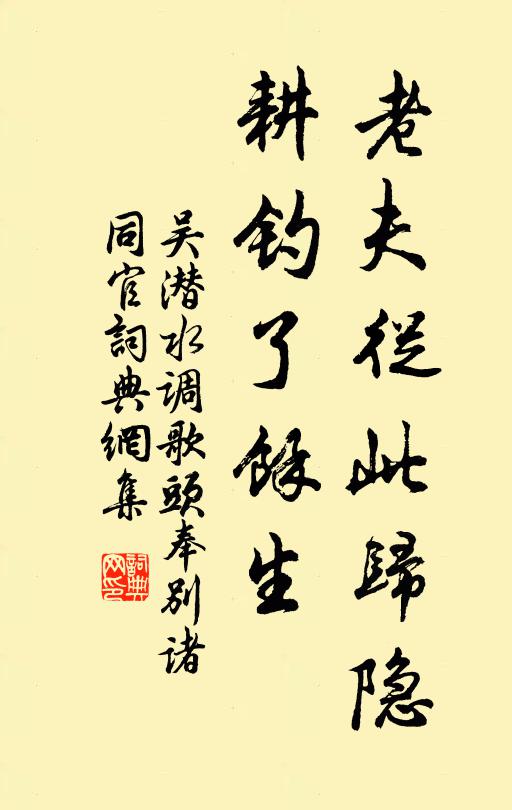 老夫從此歸隐
耕钓了餘生
吴潜水调歌頭奉别诸
同官詞典網集
詞典
网印